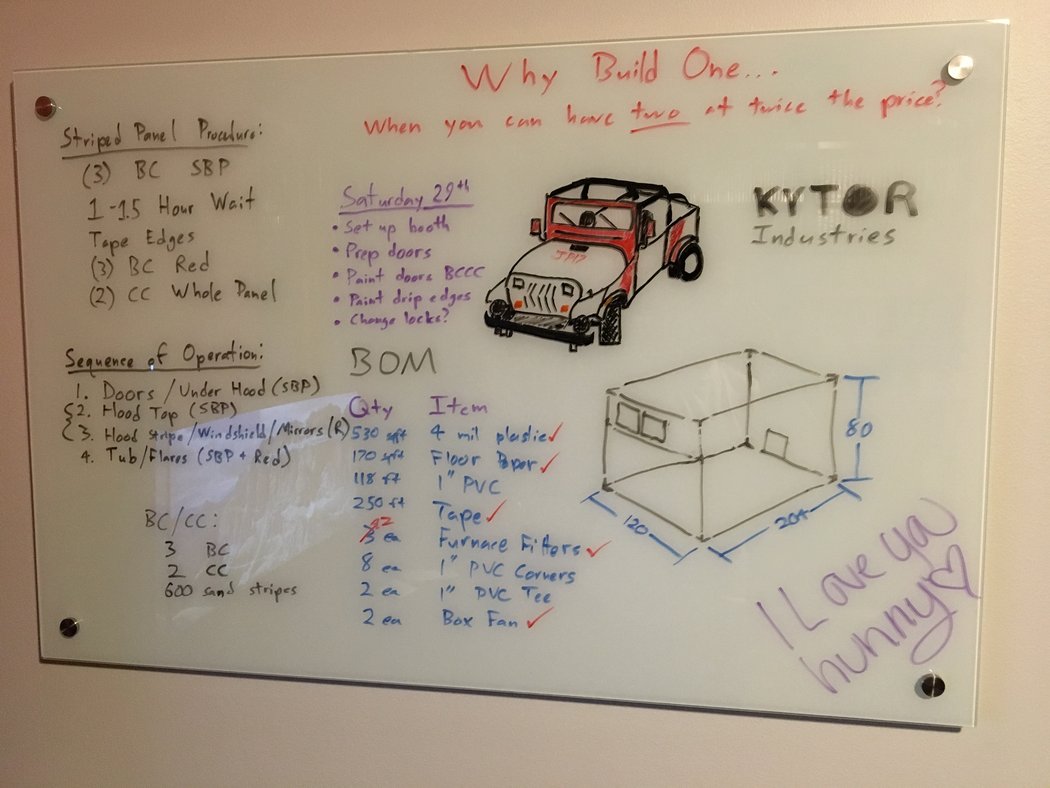 Why Build One...
When you can have two at twice the price?
Striped Panel Procedure:
(3) BC SBP
1-1.5 Hour Wait
Tape Edges
(3) BC Red
(2) CC Whole Panel
Sequence of Operation:
1. Doors/Under Hood (SBP)
2. Hood Top (SBP)
3. Hood Stripe/Windshield/Mirrors (R)
4. Tub/Flares (SBP + Red)
BC/CC:
3 BC
2 CC
600 sand stripes
Saturday 29th
• Set up booth
• Prep doors
• Paint doors BCCC
• Paint drip edges
• Change locks?
BOM
Qty Item
530 sqft 4 mil plastic ✓
170 sqft Floor Paper ✓
118 ft 1" PVC
250 ft Tape ✓
12 ea Furnace Filters ✓
8 ea 1" PVC Corners
2 ea 1" PVC Tee
2 ea Box Fan ✓
KYTOR
Industries
80
120
204
I Love ya
hunny